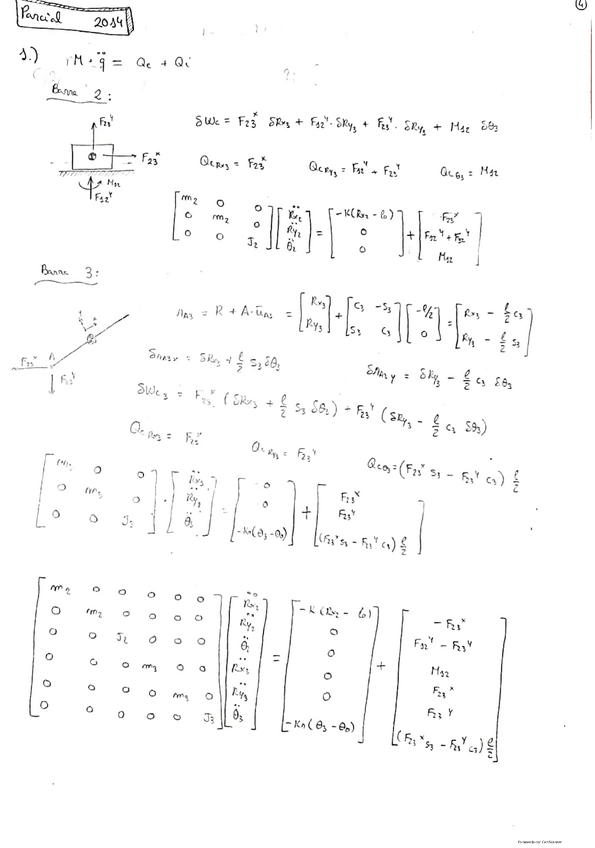 4
Parcial 2014
1.) M · q̈ = Qc + Qi
Barra 2:
δWc = F23ˣ δRx3 + F12ʸ · δRy3 + F23ʸ · δRy3 + M12 δθ3
F23ʸ
F23ˣ
M12
F12ʸ
QcRx3 = F23ˣ QcRy3 = F12ʸ + F23ʸ Qcθ3 = M12
[m2 0 0; 0 m2 0; 0 0 J2] [R̈x2; R̈y2; θ̈2] = [-K(Rx2 - l0); 0; 0] + [F23ˣ; F12ʸ + F23ʸ; M12]
Barra 3:
rA3 = R + A·ūA3 = [Rx3; Ry3] + [c3 -s3; s3 c3] [-l/2; 0] = [Rx3 - l/2 c3; Ry3 - l/2 s3]
F23ˣ
A
F23ʸ
δrA3x = δRx3 + l/2 s3 δθ3 δrA3y = δRy3 - l/2 c3 δθ3
δWc3 = F23ˣ (δRx3 + l/2 s3 δθ3) + F23ʸ (δRy3 - l/2 c3 δθ3)
QcRx3 = F23ˣ QcRy3 = F23ʸ Qcθ3 = (F23ˣ s3 - F23ʸ c3) l/2
[m3 0 0; 0 m3 0; 0 0 J3] · [R̈x3; R̈y3; θ̈3] = [0; 0; -Kn(θ3 - θ0)] + [F23ˣ; F23ʸ; (F23ˣ s3 - F23ʸ c3) l/2]
[m2 0 0 0 0 0; 0 m2 0 0 0 0; 0 0 J2 0 0 0; 0 0 0 m3 0 0; 0 0 0 0 m3 0; 0 0 0 0 0 J3] [R̈x2; R̈y2; θ̈2; R̈x3; R̈y3; θ̈3] = [-K(Rx2 - l0); 0; 0; 0; 0; -Kn(θ3 - θ0)] + [-F23ˣ; F12ʸ - F23ʸ; M12; F23ˣ; F23ʸ; (F23ˣ s3 - F23ʸ c3) l/2]